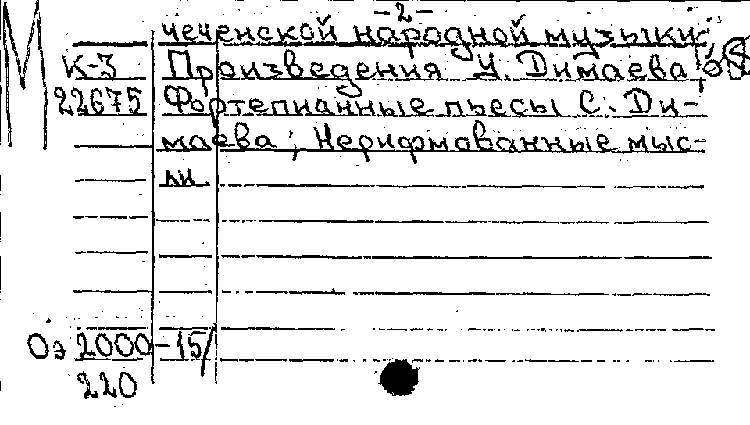 -2-
чеченской народной музыки;
К-3 Произведения У. Димаева;
22675 Фортепианные пьесы С. Ди-
маева; Нерифмованные мыс-
ли.
Оэ 2000-15/
220